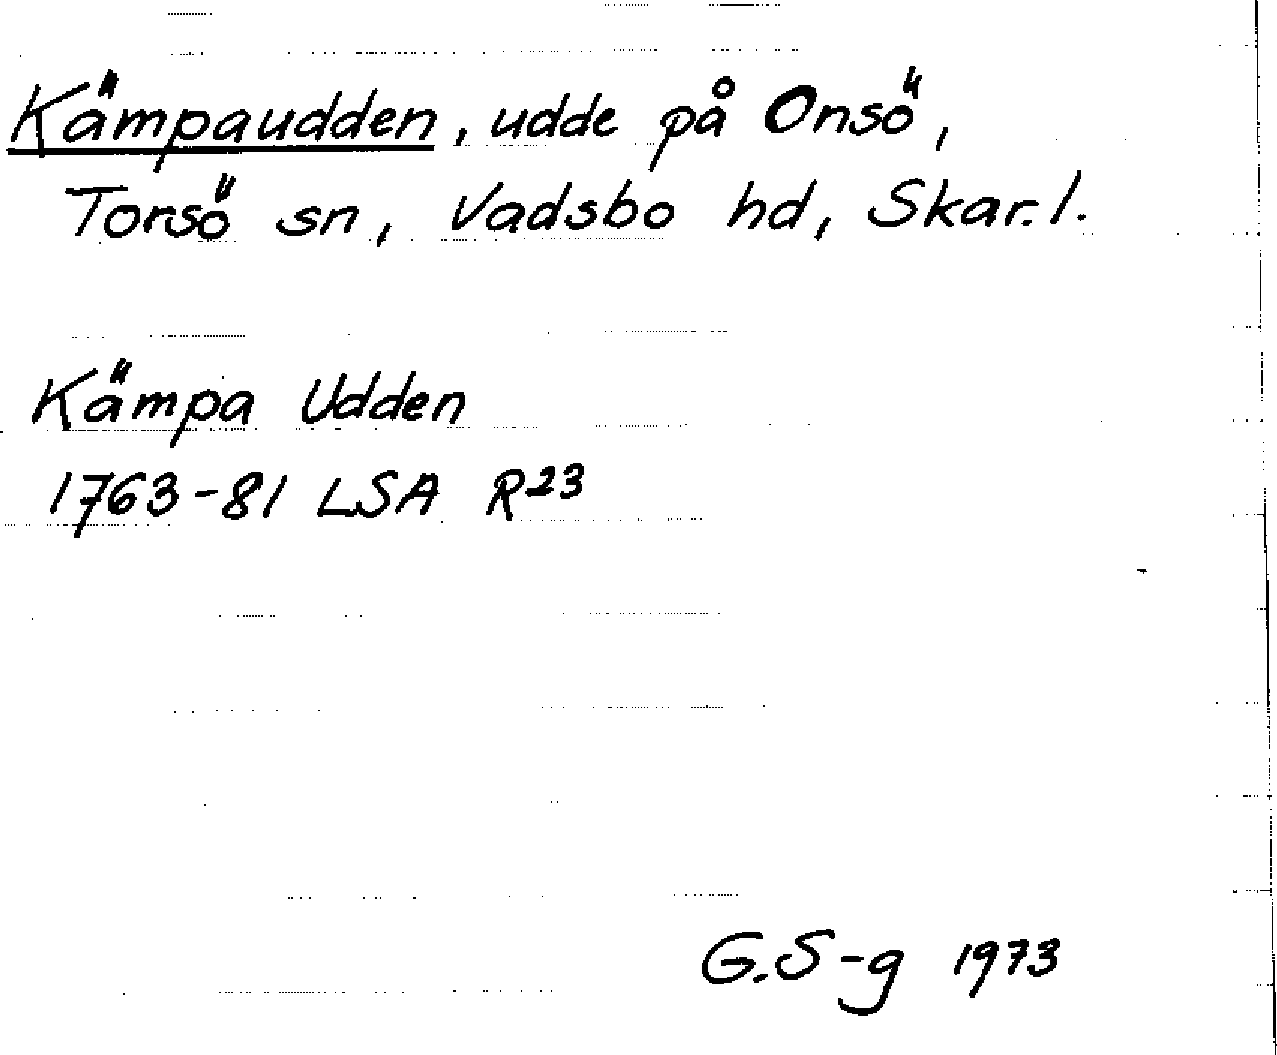 Kämpaudden, udde på Onsö,
Torsö sn, Vadsbo hd, Skar. l.
Kämpa Udden
1763-81 LSA R23
G.S-g 1973